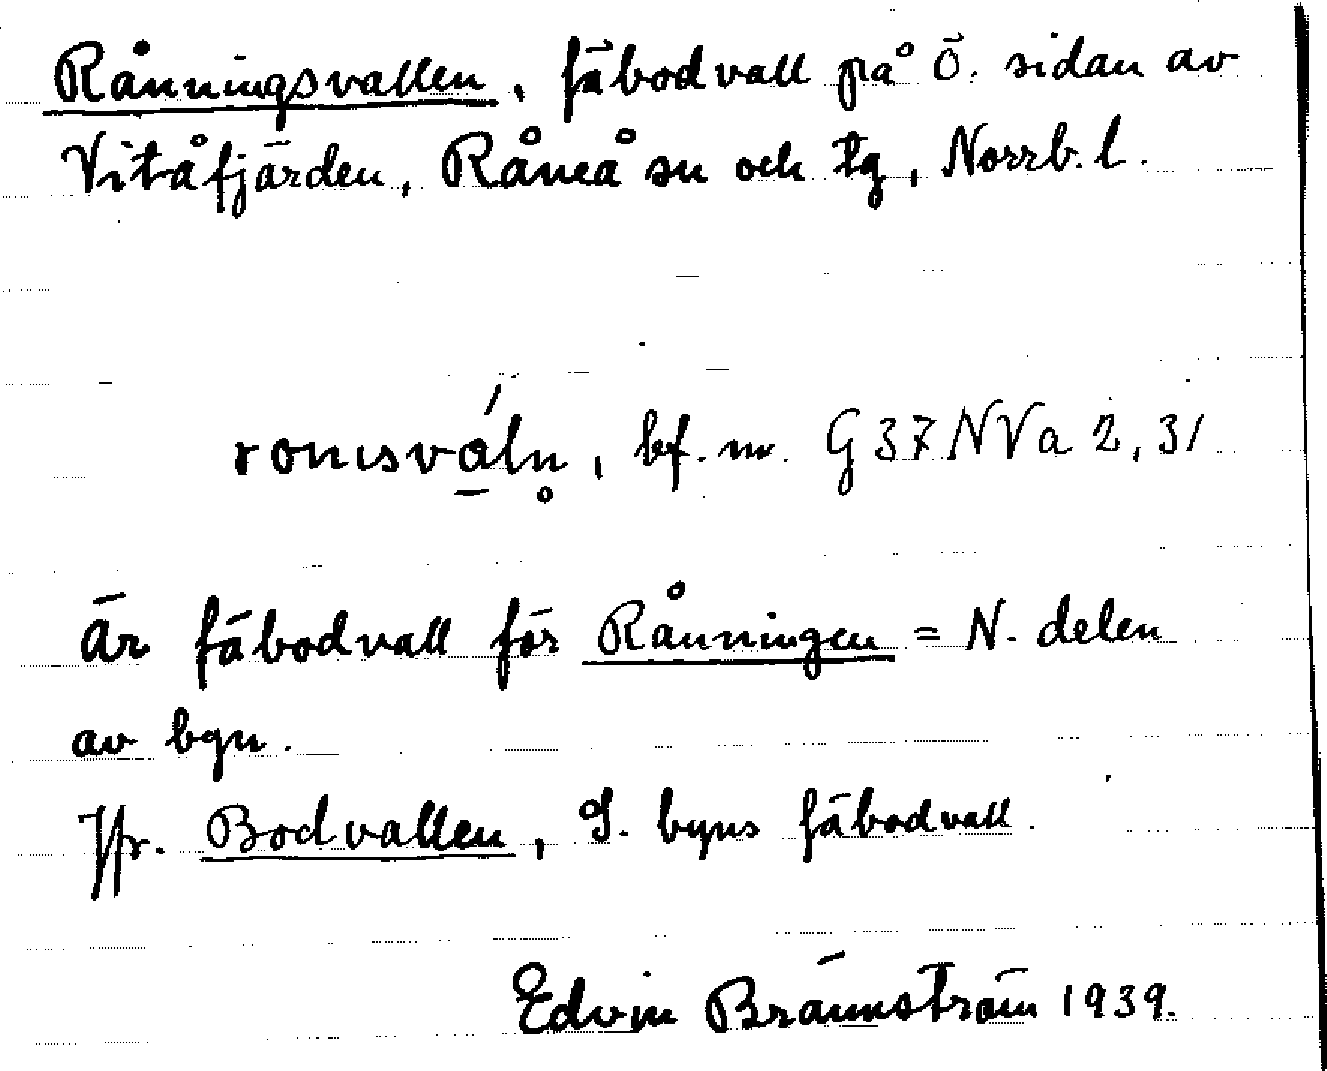 Rånningsvallen, fäbodvall på Ö. sidan av
Vitåfjärden, Råneå sn och tg, Norrb. l.
bf. nr. G37NVa 2,31
Är fäbodvall för Rånningen = N. delen
av byn.
Jfr. Bodvallen, S. byns fäbodvall.
Edvin Brännström 1939.